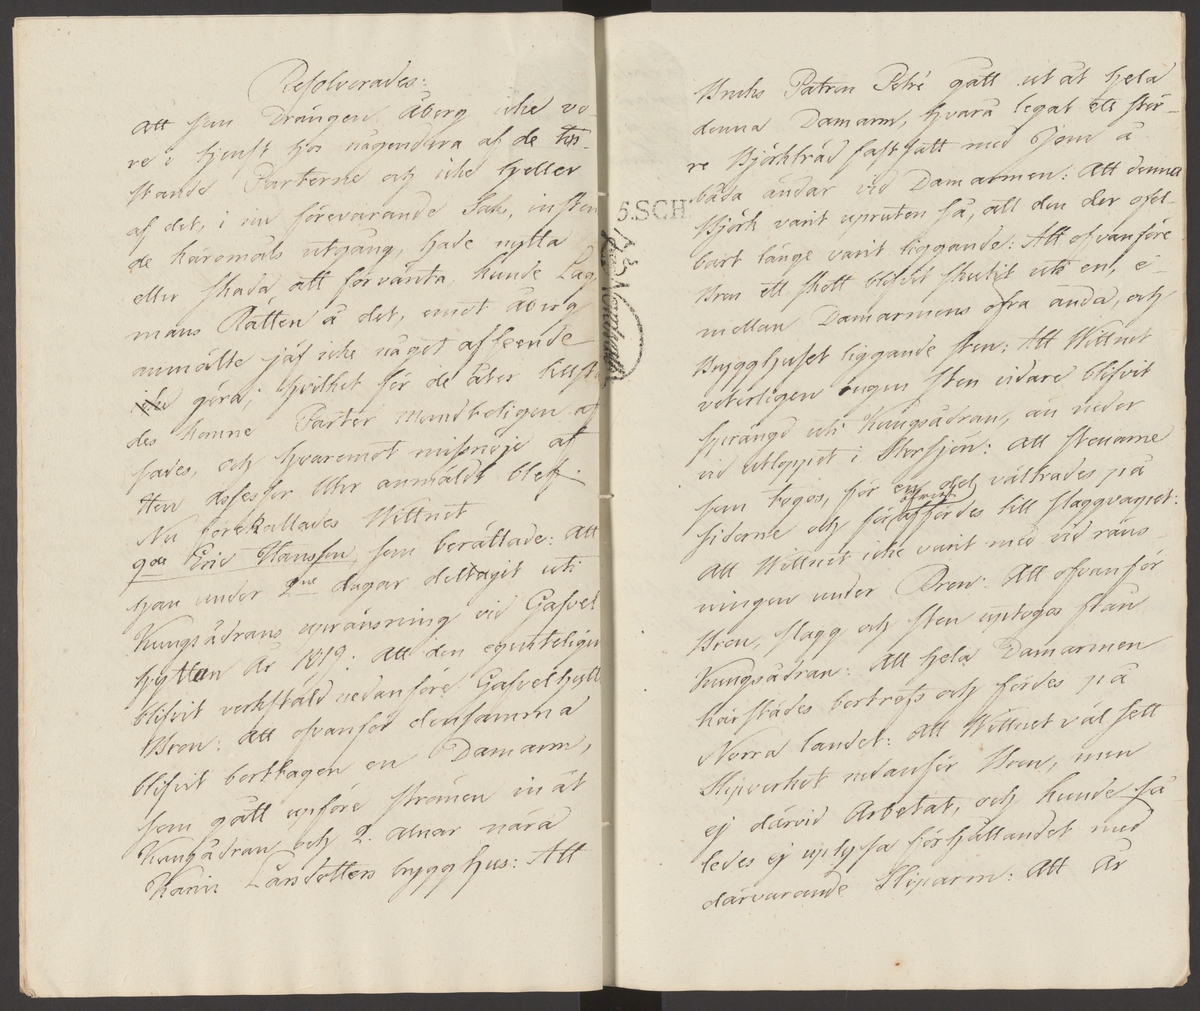 Resolverades:
Att som Drängen Åberg icke vo-
re i tjenst hos någondera af de tvi-
stande Parterne och icke heller
af det, i nu förevarande Sak, insten
de käromåls utgång, hade nytta
eller skada att förvänta, kunde Lag
mans Rätten å det, emot Åberg
anmälte jäf icke något afseende
göra; hvilket för de åter
des komne Parter mundteligen af
sades, och hvaremot missnöje af
Herr Assessor anmäldt blef.
Nu förekallades Wittnet
9o Eric Hansson, som berättade: Att
han under 2ne dagar deltagit uti
Kungsådrans uprånsning vid Gafvel
hyttan År 1819: Att den egenteligen
blifvit verkstäld nedanföre Gafvelhytt
Bron: Att ofvanför densamma
blifvit borttagen en Damarm,
som gått upföre strömen inåt
Kungsådran och 2 alnar nära
Karin Larsdotters brygghus: Att
Bruks Patron Petré gått ut åt hela
denna Damarm, hvara legat ett stör-
re Björkträd fastsatt med Jern å
båda ändar vid Damarmen: Att denna
Björk varit uprutten så, att den der ofel-
bart länge varit liggande: Att ofvanföre
Bron ett skott blifvit skutit uti en, e-
mellan Damarmens öfra ända, och
Brygghuset liggande sten: Att Wittnet
veterligen ingen sten vidare blifvit
sprängd uti Kungsådran, än neder
vid utloppet i Storsjön: Att stenarne
som togos, för en del vältrades på
siderne och för öfrigt fördes till slaggvarpet:
Att Wittnet icke varit med vid räns-
ningen under Bron: Att ofvanför
Bron, slagg och sten uptogos från
Kungsådran: Att hela Damarmen
härstädes bortrefs och fördes på
Norra landet: Att Wittnet väl sett
Slipverket nedanför Bron, men
ej därvid Arbetat, och kunde så-
ledes ej uplysa förhållandet med
därvarande Sliparm: Att År
5.SCH